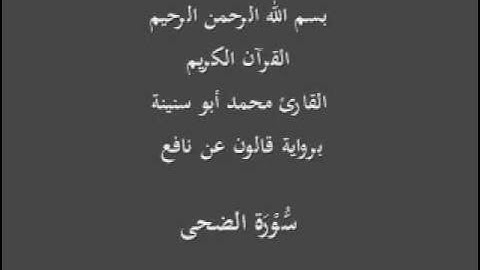 بسم الله الرحمن الرحيم
القرآن الكريم
القارئ محمد أبو سنينة
برواية قالون عن نافع
سُّوْرَة الضحى